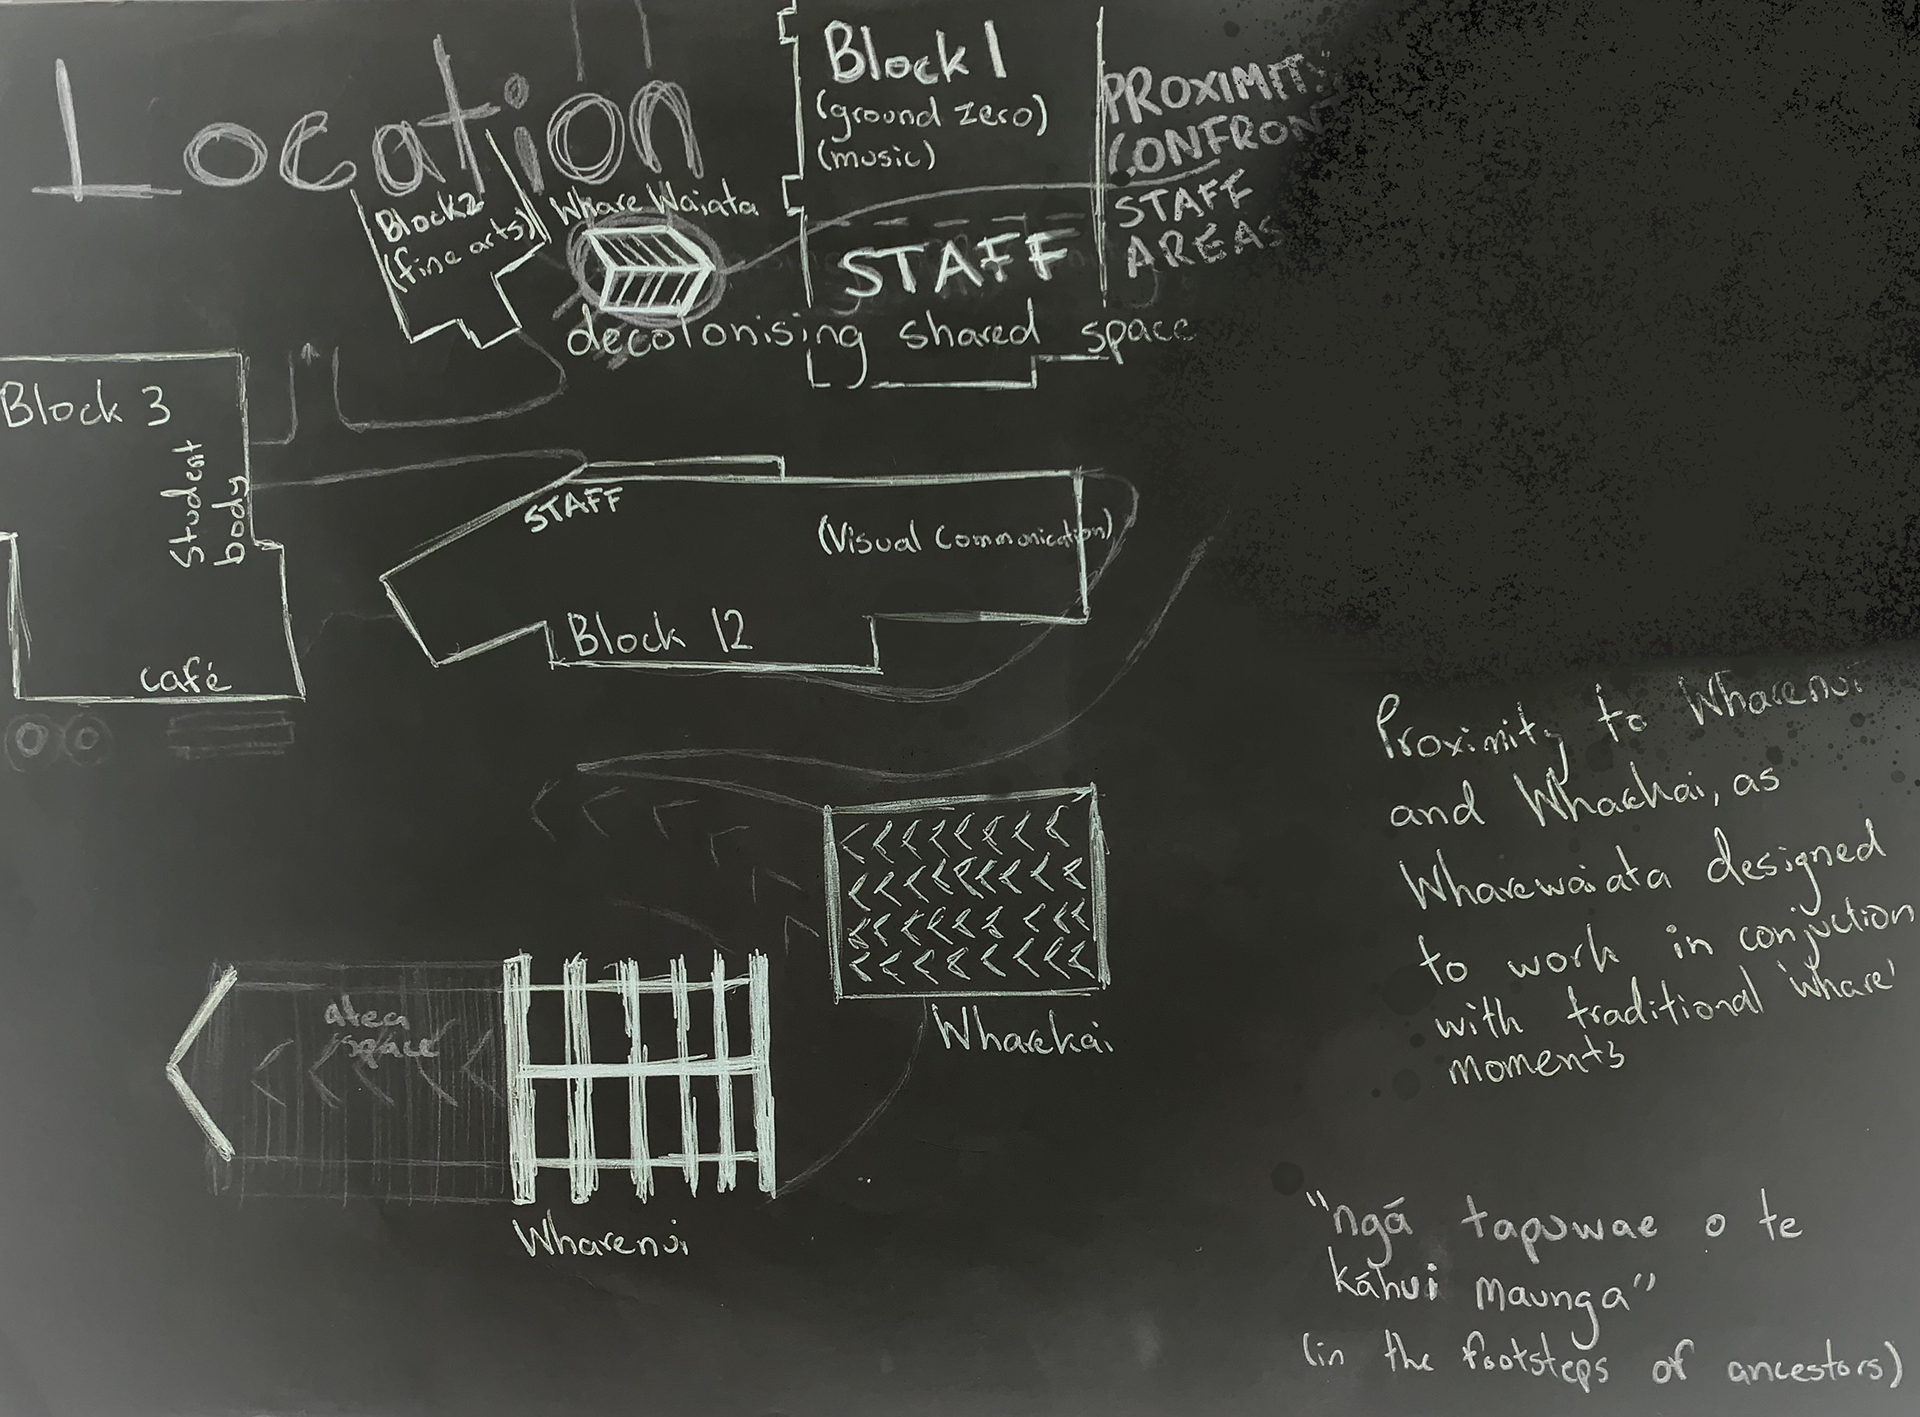 Location
Block 1
(ground zero)
(music)
PROXIMITY
CONFRON
STAFF
AREAS
Block 2
(fine arts)
Whare Waiata
STAFF
decolonising shared space
Block 3
Student
body
café
STAFF
(Visual Communication)
Block 12
Wharekai
atea
space
Wharenui
Proximity to Wharenui
and Wharekai, as
Wharewaiata designed
to work in conjuction
with traditional 'whare'
moments
"ngā tapuwae o te
kāhui maunga"
(in the footsteps of ancestors)